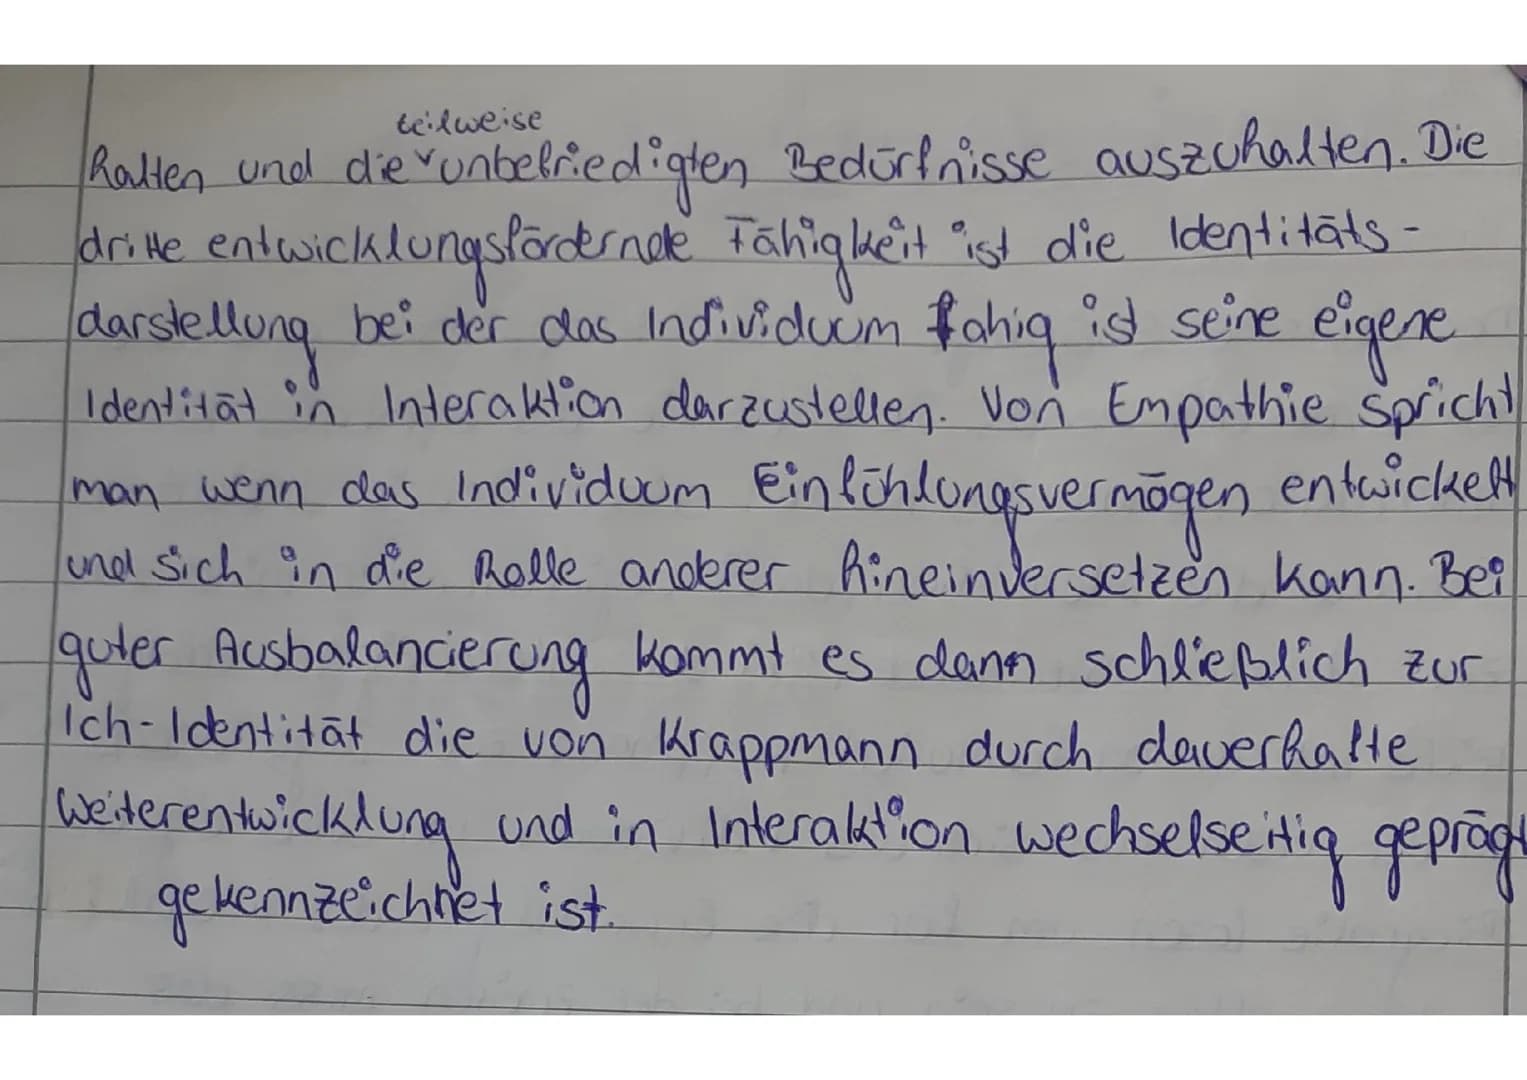 teilweise
halten und die unbefriedigten Bedürfnisse auszuhalten. Die
dritte entwicklungsfördernde Fähigkeit ist die Identitäts-
darstellung bei der das Individuum fähig ist seine eigene
Identität in Interaktion darzustellen. Von Empathie spricht
man wenn das Individuum Einfühlungsvermögen entwickelt
und sich in die Rolle anderer hineinversetzen kann. Bei
guter Ausbalancierung kommt es dann schließlich zur
Ich-Identität die von Krappmann durch dauerhafte
Weiterentwicklung und in Interaktion wechselseitig geprägt
gekennzeichnet ist.